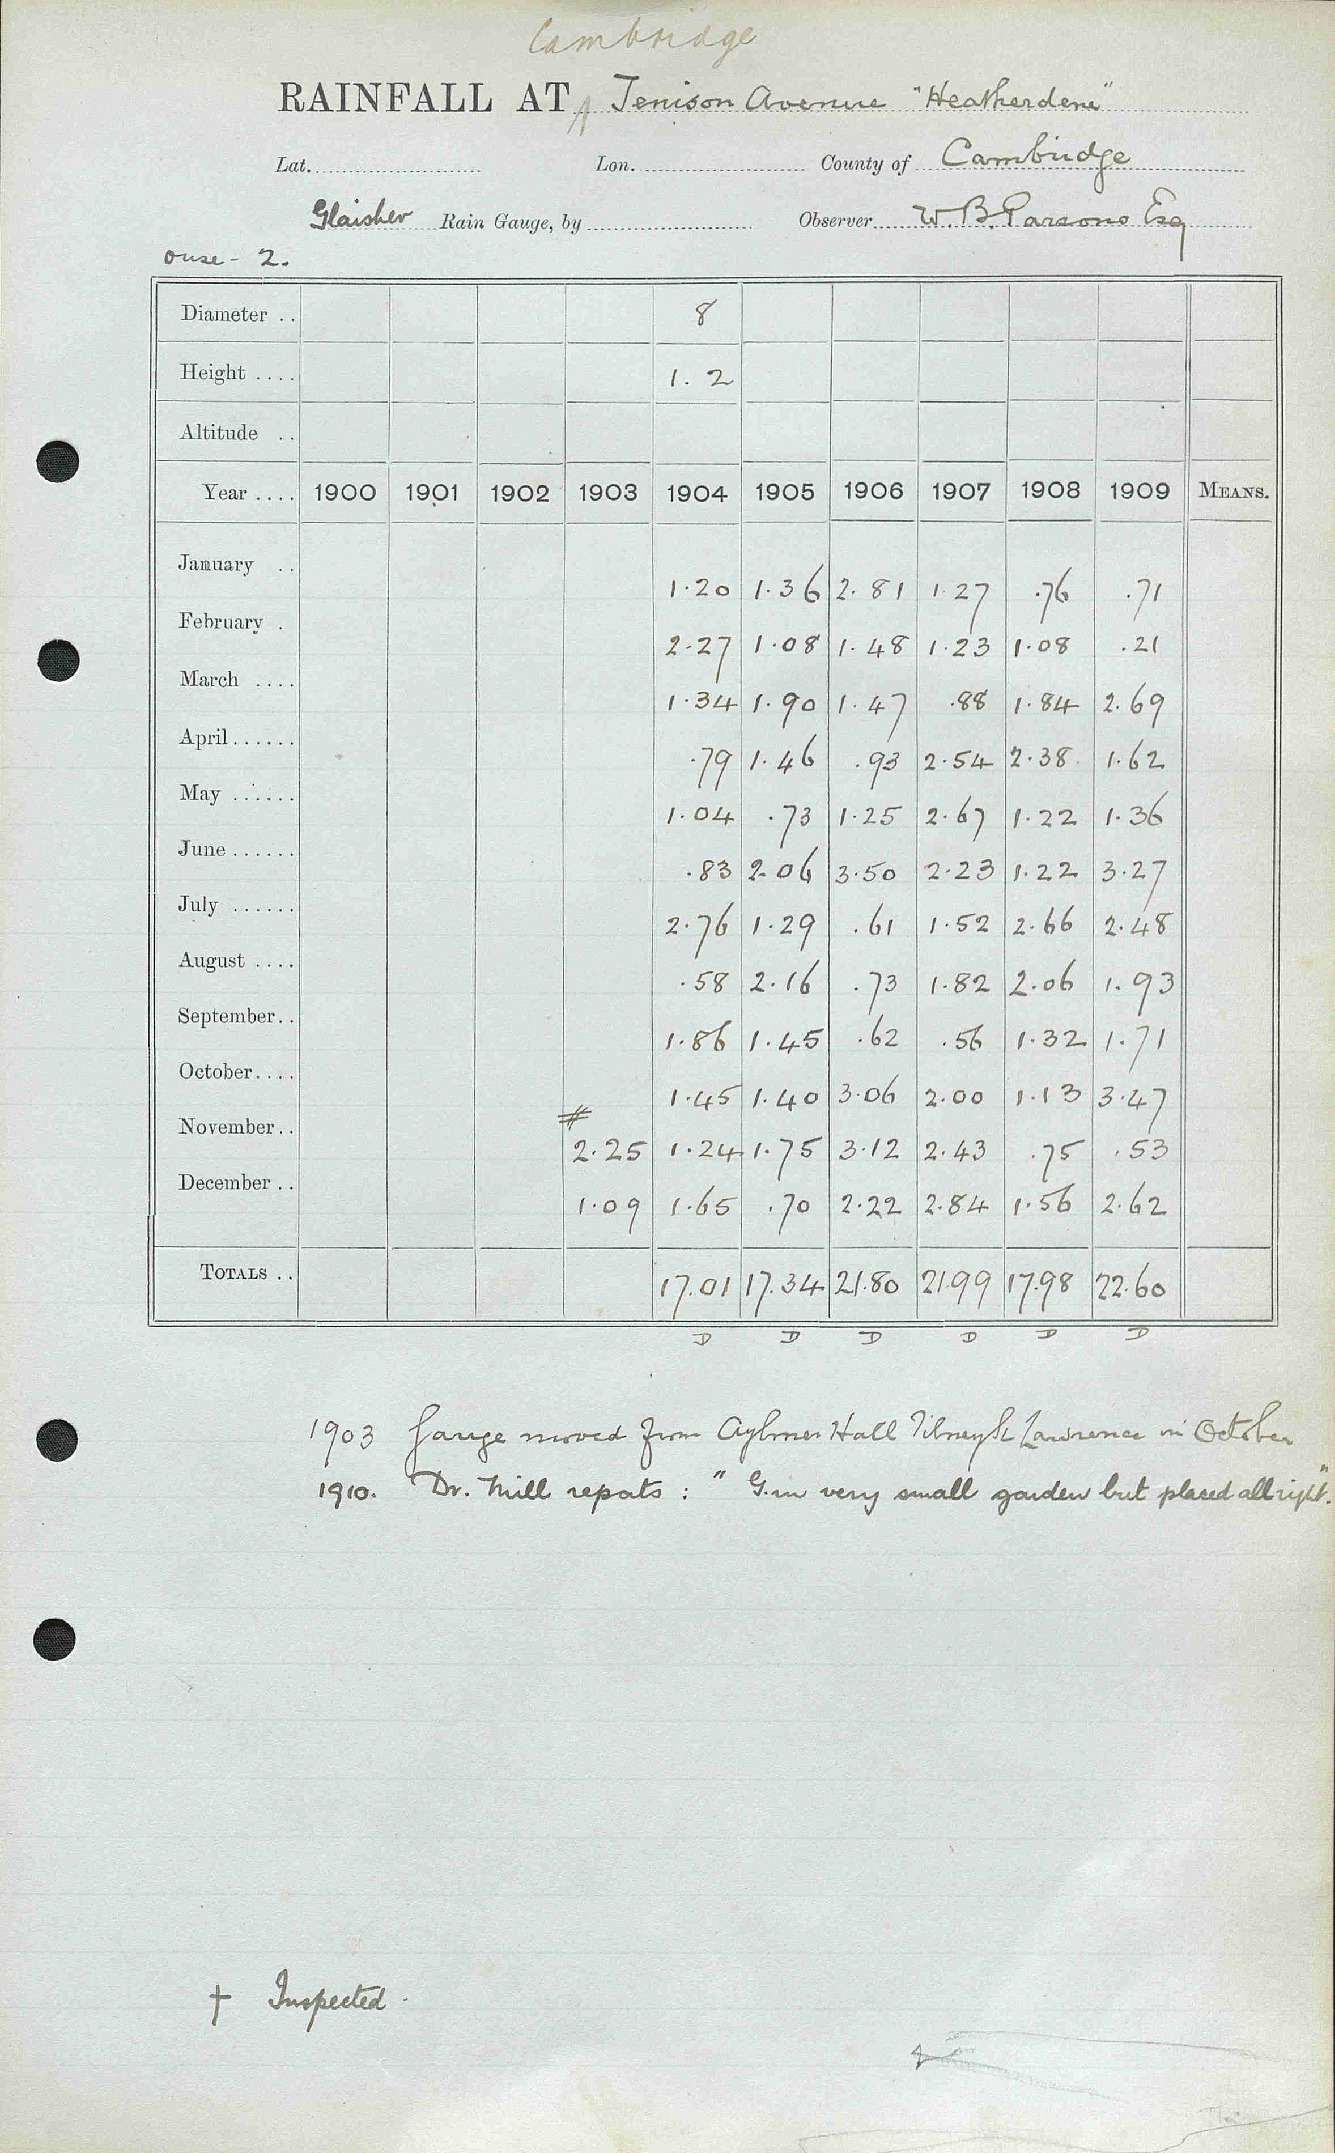 Cambridge
RAINFALL AT Tenison Avenue "Heatherdene"
Lat. Lon. County of Cambridge
Glaisher Rain Gauge, by Observer W. B. Parsons Esq
ouse - 2.
Diameter .. 8
Height .... 1. 2
Altitude ..
Year .... 1900 1901 1902 1903 1904 1905 1906 1907 1908 1909 MEANS.
January .. 1.20 1.36 2.81 1.27 .76 .71
February . 2.27 1.08 1.48 1.23 1.08 .21
March .... 1.34 1.90 1.47 .88 1.84 2.69
April...... .79 1.46 .93 2.54 2.38 1.62
May ...... 1.04 .73 1.25 2.67 1.22 1.36
June ...... .83 2.06 3.50 2.23 1.22 3.27
July ...... 2.76 1.29 .61 1.52 2.66 2.48
August .... .58 2.16 .73 1.82 2.06 1.93
September.. 1.86 1.45 .62 .56 1.32 1.71
October.... 1.45 1.40 3.06 2.00 1.13 3.47
November.. # 2.25 1.24 1.75 3.12 2.43 .75 .53
December .. 1.09 1.65 .70 2.22 2.84 1.56 2.62
TOTALS .. 17.01 17.34 21.80 21.99 17.98 22.60
D D D D D D
1903 Gauge moved from Aylmer Hall Tilney St Lawrence in October
1910. Dr. Mill repots : " G. in very small garden but placed all right."
† Inspected.